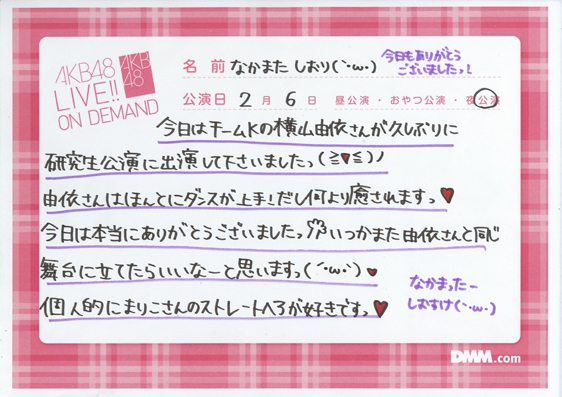 AKB48
LIVE!!
ON DEMAND
AKB
48
名 前 なかまた しおり(´･ω･)
今日もありがとう
ございましたっ!
公演日 2 月 6 日 昼公演・おやつ公演・夜公演
今日はチームKの横山由依さんが久しぶりに
研究生公演に出演して下さいましたっ(≧▼≦)ノ
由依さんはほんとにダンスが上手いだし何より癒されますっ♥
今日は本当にありがとうございましたっ いつかまた由依さんと同じ
舞台に立てたらいいなーと思いますっ(´･ω･`)♥
個人的にまりこさんのストレートヘアが好きですっ♥
なかまったー
しおすけ(´･ω･)
DMM.com